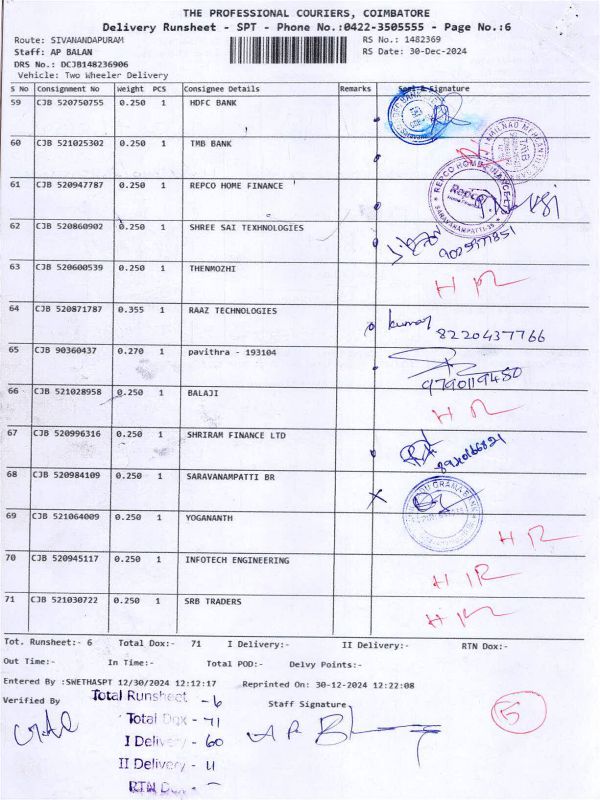 THE PROFESSIONAL COURIERS, COIMBATORE
Delivery Runsheet - SPT - Phone No.:0422-3505555 - Page No.:6
Route: SIVANANDAPURAM RS No.: 1482369
Staff: AP BALAN RS Date: 30-Dec-2024
DRS No.: DCJB148236906
Vehicle: Two Wheeler Delivery
S No Consignment No Weight PCS Consignee Details Remarks Seal & Signature
59 CJB 520750755 0.250 1 HDFC BANK
60 CJB 521025302 0.250 1 TMB BANK
TAMILNAD MERCANTILE
TMB
61 CJB 520947787 0.250 1 REPCO HOME FINANCE
REPCO HOME FINANCE
Repco
SARAVANAMPATTI-35
62 CJB 520860902 0.250 1 SHREE SAI TEXHNOLOGIES
63 CJB 520600539 0.250 1 THENMOZHI
64 CJB 520871787 0.355 1 RAAZ TECHNOLOGIES
kumar
8220437766
65 CJB 90360437 0.270 1 pavithra - 193104
9790119450
66 CJB 521028958 0.250 1 BALAJI
67 CJB 520996316 0.250 1 SHRIRAM FINANCE LTD
68 CJB 520984109 0.250 1 SARAVANAMPATTI BR
69 CJB 521064009 0.250 1 YOGANANTH
70 CJB 520945117 0.250 1 INFOTECH ENGINEERING
71 CJB 521030722 0.250 1 SRB TRADERS
Tot. Runsheet:- 6 Total Dox:- 71 I Delivery:- II Delivery:- RTN Dox:-
Out Time:- In Time:- Total POD:- Delvy Points:-
Entered By :SWETHASPT 12/30/2024 12:12:17 Reprinted On: 30-12-2024 12:22:08
Verified By Total Runsheet - 6 Staff Signature
Total Dox - 71
I Delivery - 60
II Delivery - 11
RTN Dox - -
5